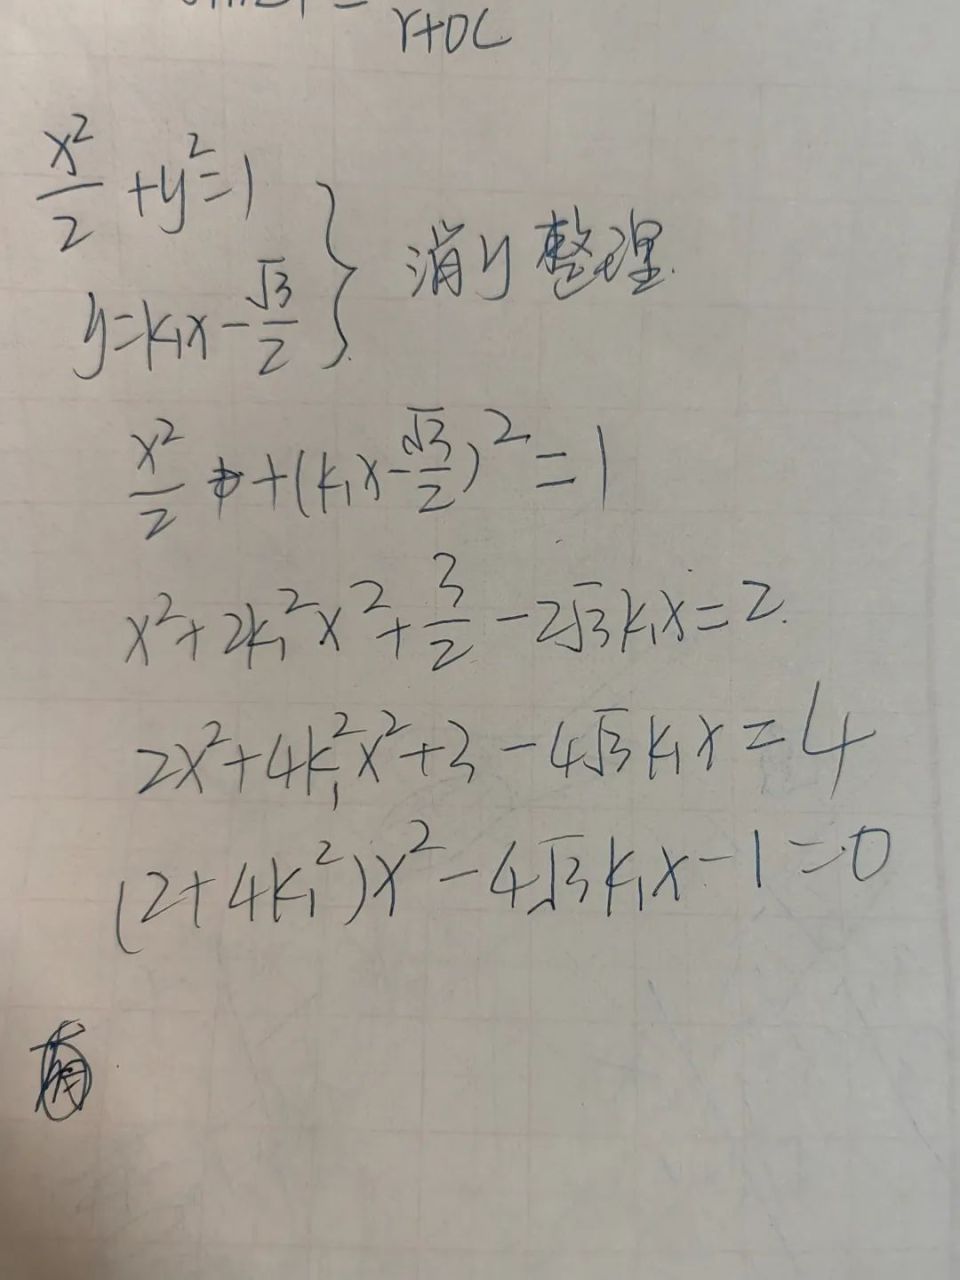 r+OC
x²/2 + y² = 1
y = k₁x - √3/2 } 消y整理.
x²/2 + (k₁x - √3/2)² = 1
x² + 2k₁²x² + 3/2 - 2√3k₁x = 2.
2x² + 4k₁²x² + 3 - 4√3k₁x = 4
(2 + 4k₁²)x² - 4√3k₁x - 1 = 0